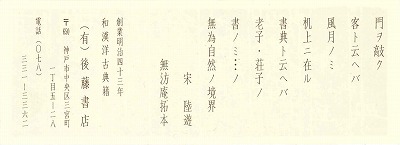 門ヲ敲ク
客ト云ヘバ
風月ノミ
机上ニ在ル
書典ト云ヘバ
老子・荘子ノ
書ノミ…ノ
無為自然ノ境界
宋 陸遊
無汸庵拓本
創業明治四十三年
和漢洋古典籍
(有)後藤書店
〒650 神戸市中央区三宮町
一丁目五-二八
電話(〇七八)
三三一-三三六二